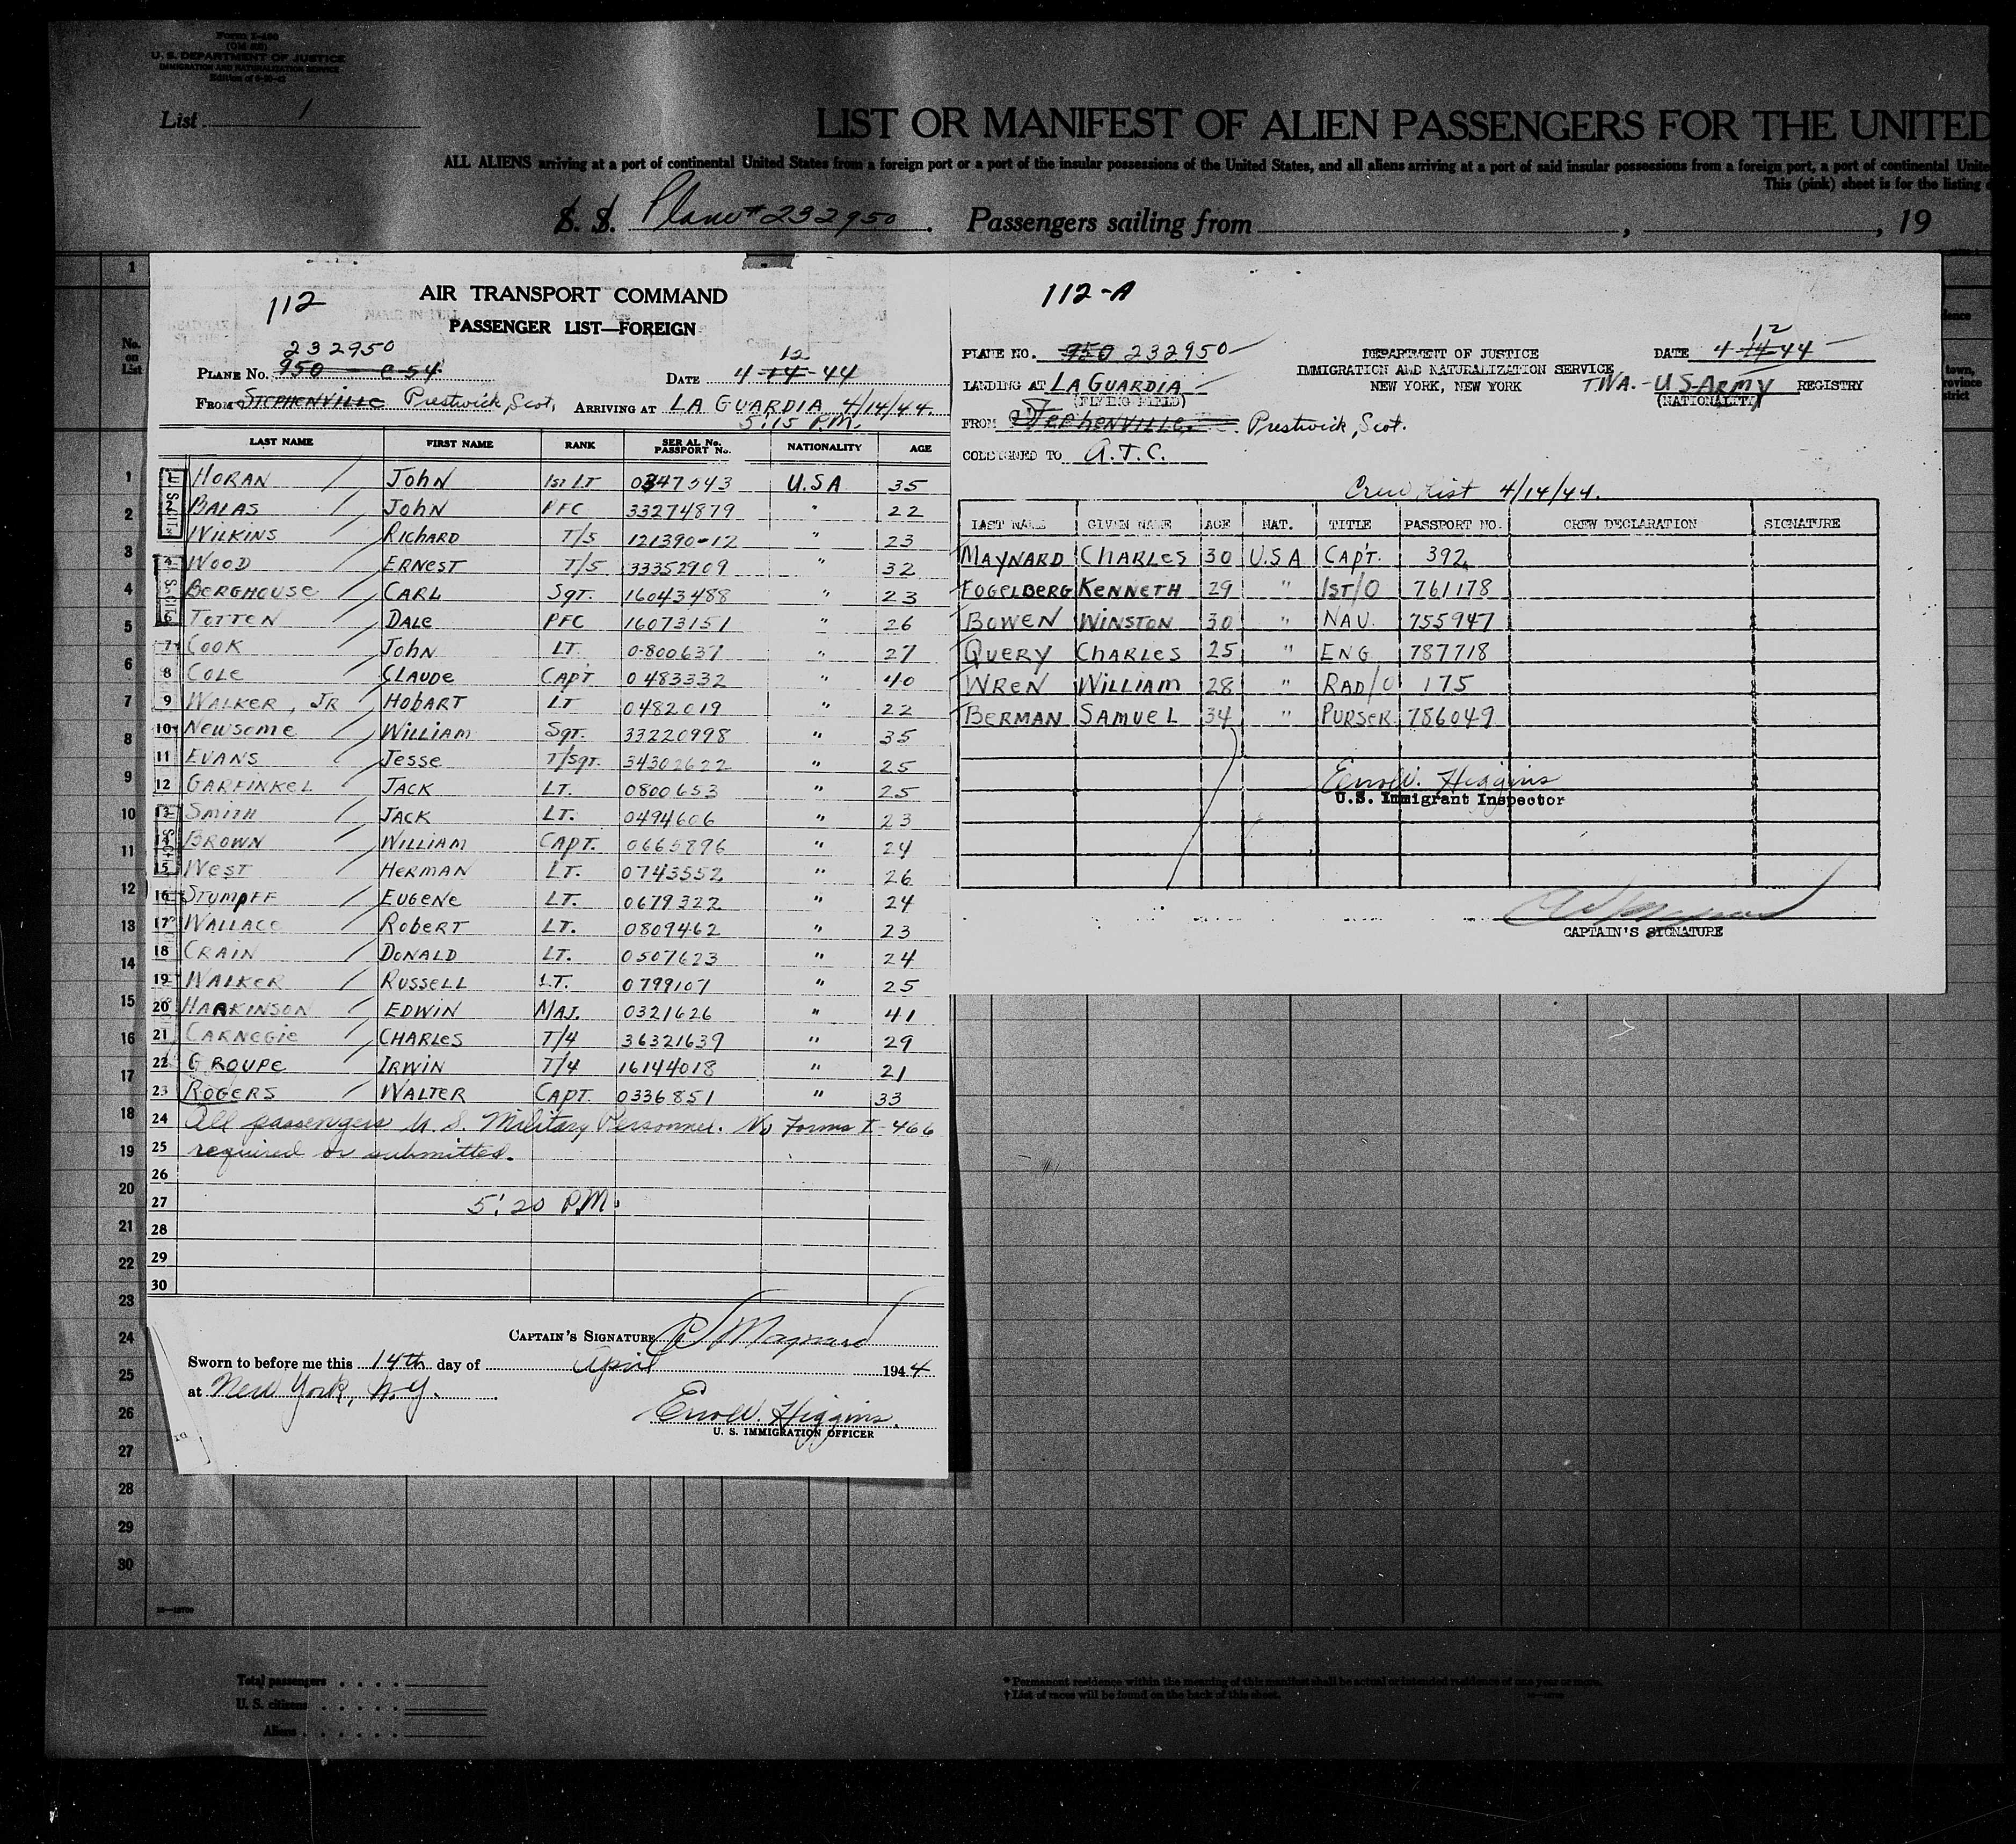 Form I-466
(Old 632)
U. S. DEPARTMENT OF JUSTICE
IMMIGRATION AND NATURALIZATION SERVICE
List 1
LIST OR MANIFEST OF ALIEN PASSENGERS FOR THE UNITED
ALL ALIENS arriving at a port of continental United States from a foreign port or a port of the insular possessions of the United States, and all aliens arriving at a port of said insular possessions from a foreign port, a port of continental Unite
This (pink) sheet is for the listing
S. S. Plane # 232950. Passengers sailing from , , 19
No. on List
112
AIR TRANSPORT COMMAND
PASSENGER LIST—FOREIGN
232950
PLANE No. 950 - C-54
12
DATE 4-14-44
FROM STEPHENVILLE Prestwick, Scot, ARRIVING AT LA GUARDIA 4/14/44
5:15 P.M.
LAST NAME FIRST NAME RANK SERIAL No. PASSPORT No. NATIONALITY AGE
HORAN John 1st LT 0347543 U.S.A 35
BALAS John PFC 33274879 " 22
WILKINS RICHARD T/5 121390-12 " 23
WOOD ERNEST T/5 33352909 " 32
BERGHOUSE CARL Sgt. 16043488 " 23
TOTTEN DALE PFC 16073151 " 26
7 COOK John LT. 0-800637 " 27
8 COLE CLAUDE CAPT 0483332 " 40
9 WALKER, JR HobART LT 0482019 " 22
10 NEWSOME WILLIAM Sgt. 33220998 " 35
11 EVANS Jesse T/Sgt. 34302622 " 25
12 GARFINKEL JACK LT. 0800653 " 25
13 SMITH JACK LT. 0494606 " 23
14 BROWN WILLIAM CAPT. 0665896 " 24
15 WEST HERMAN LT. 0743552 " 26
16 STUMPFF EUGENE LT. 0679322 " 24
17 WALLACE ROBERT LT. 0809462 " 23
18 CRAIN DONALD LT. 0507623 " 24
19 WALKER RUSSELL LT. 0799107 " 25
20 HARKINSON EDWIN MAJ. 0321626 " 41
21 CARNEGIE CHARLES T/4 36321639 " 29
22 GROUPE IRWIN T/4 16144018 " 21
23 ROGERS WALTER CAPT. 0336851 " 33
24 All passengers U. S. Military Personnel. No Forms I-466
25 required or submitted.
26
27 5:20 P.M.
28
29
30
CAPTAIN'S SIGNATURE C W Maynard
Sworn to before me this 14th day of April 1944
at New York, N.Y.
Errol W. Higgins
U. S. IMMIGRATION OFFICER
112-A
PLANE NO. 950 232950
DEPARTMENT OF JUSTICE
IMMIGRATION AND NATURALIZATION SERVICE
NEW YORK, NEW YORK
12
DATE 4-14-44
LANDING AT LA GUARDIA
(FLYING FIELD)
TWA.-U.S.ARMY REGISTRY
(NATIONALITY)
FROM STEPHENVILLE Prestwick, Scot.
CONSIGNED TO A.T.C.
Crew List 4/14/44.
LAST NAME GIVEN NAME AGE NAT. TITLE PASSPORT NO. CREW DECLARATION SIGNATURE
MAYNARD CHARLES 30 U.S.A CAPT. 392
FOGELBERG KENNETH 29 " 1ST/O 761178
BOWEN WINSTON 30 " NAV. 755947
QUERY CHARLES 25 " ENG 787718
WREN WILLIAM 28 " RAD/O 175
BERMAN SAMUEL 34 " PURSER 786049
Errol W. Higgins
U.S. Immigrant Inspector
C W Maynard
CAPTAIN'S SIGNATURE
1
2
3
4
5
6
7
8
9
10
11
12
13
14
15
16
17
18
19
20
21
22
23
24
25
26
27
28
29
30
Total passengers
U. S. citizens
Aliens
* Permanent residence within the meaning of this manifest shall be actual or intended residence of one year or more.
† List of races will be found on the back of this sheet.